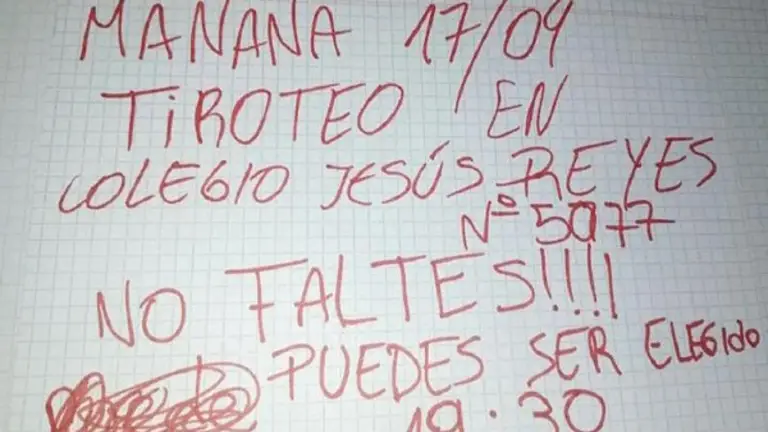 MAÑANA 17/09
TIROTEO EN
COLEGIO JESÚS REYES
Nº 5077
NO FALTES!!!!
PUEDES SER ELEGIDO
19.30